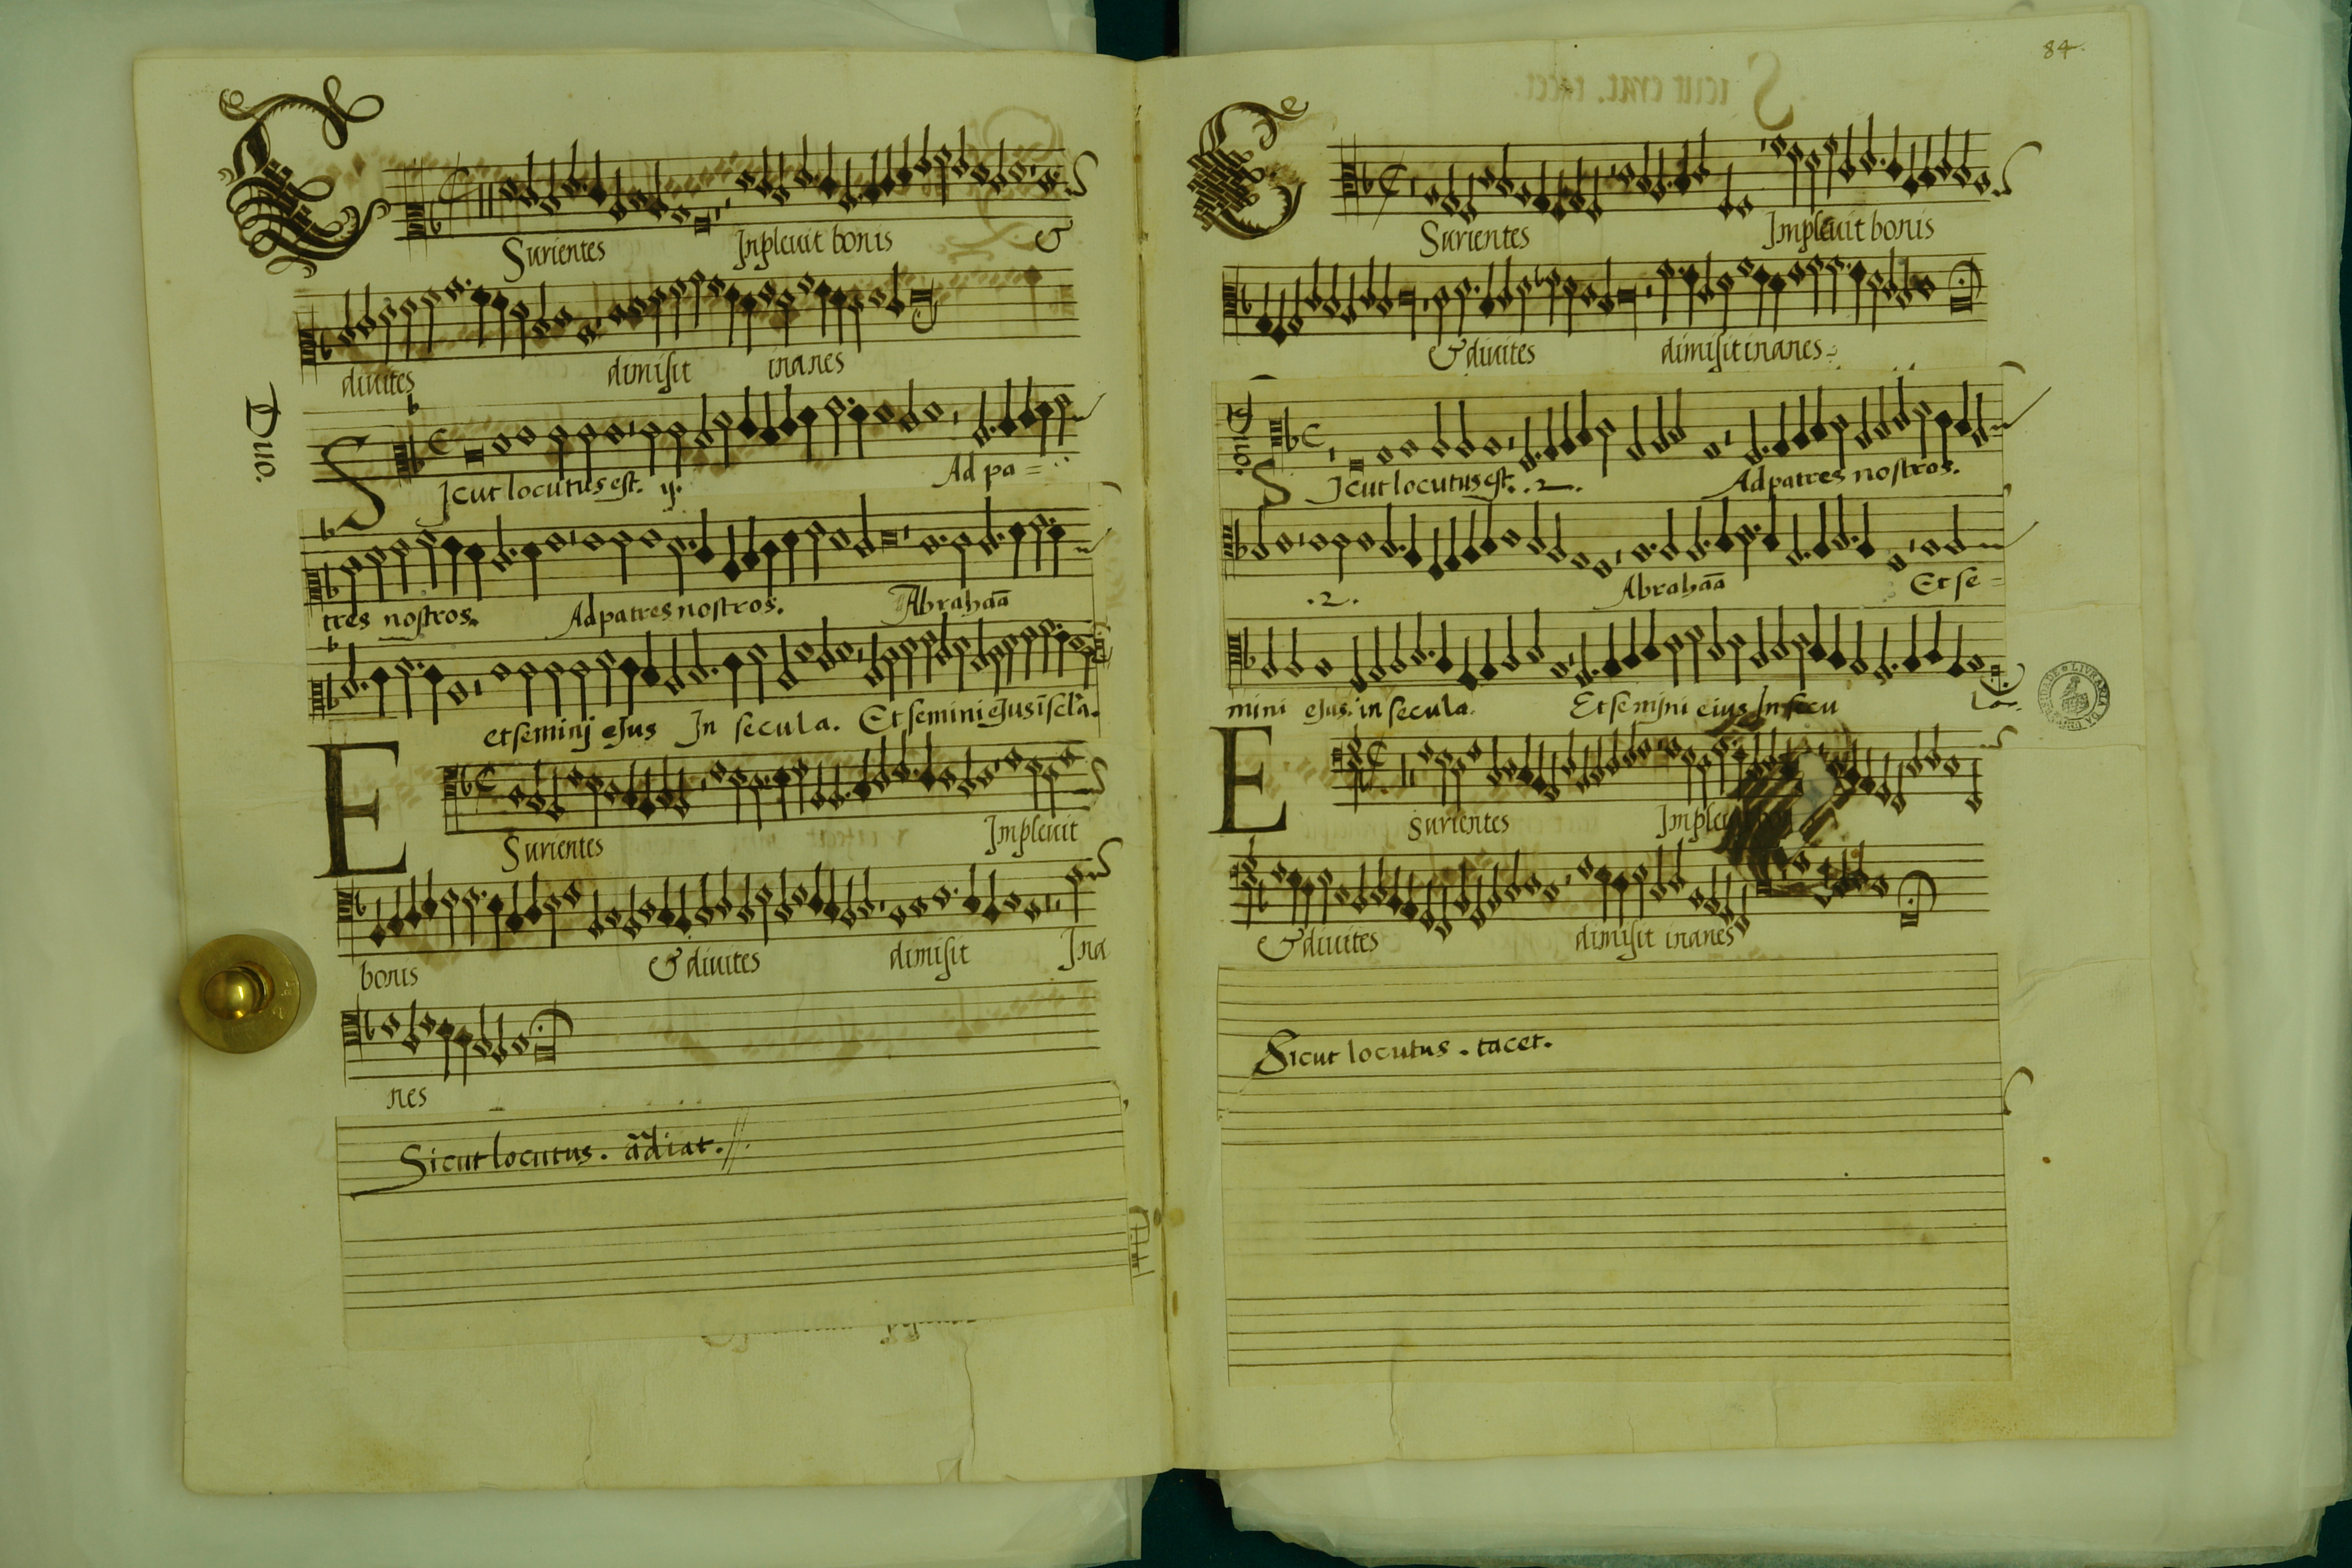 E
Surientes Inplevit bonis &
divites dimisit inanes
Duo.
Sicut locutus est. ij. Ad pa=
tres nostros. Ad patres nostros. Abrahaã
et seminj ejus In secula. Et semini ejus
E
Surientes Implevit
bonis & divites dimisit Ina
nes
Sicut locutus.
84.
E
Surientes Implevit bonis
& divites dimisit inanes
Duo.
Sicut locutus est. .2. Ad patres nostros.
.2. Abrahaã Et se=
mini ejus. in secula. Et semjni eius In secu la.
E
Surientes
& divites dimisit inanes
Sicut locutus. tacet.